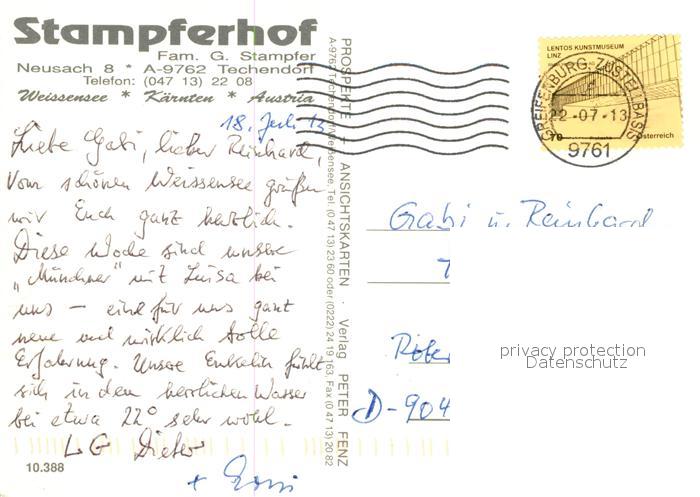 Stampferhof
Fam. G. Stampfer
Neusach 8 * A-9762 Techendorf
Telefon: (047 13) 22 08
Weissensee * Kärnten * Austria
18. Juli 13
Liebe Gabi, lieber Reinhard,
Vom schönen Weissensee grüßen
wir Euch ganz herzlich.
Diese Woche sind unsere
„Münchner" mit Luisa bei
uns – eine für uns ganz
neue und wirklich tolle
Erfahrung. Unsere Enkelin fühlt
sich in dem herrlichen Wasser
bei etwa 22° sehr wohl.
LG Dieter
+ Erni
10.388
PROSPEKTE + ANSICHTSKARTEN · Verlag PETER FENZ
A-9762 Techendorf/Weissensee, Tel. (0 47 13) 23 60 oder (0222) 24 19 163, Fax (0 47 13) 20 82
LENTOS KUNSTMUSEUM
LINZ
70
Österreich
22-07-13
9761
Gabi u. Reinhard
D-904
privacy protection
Datenschutz